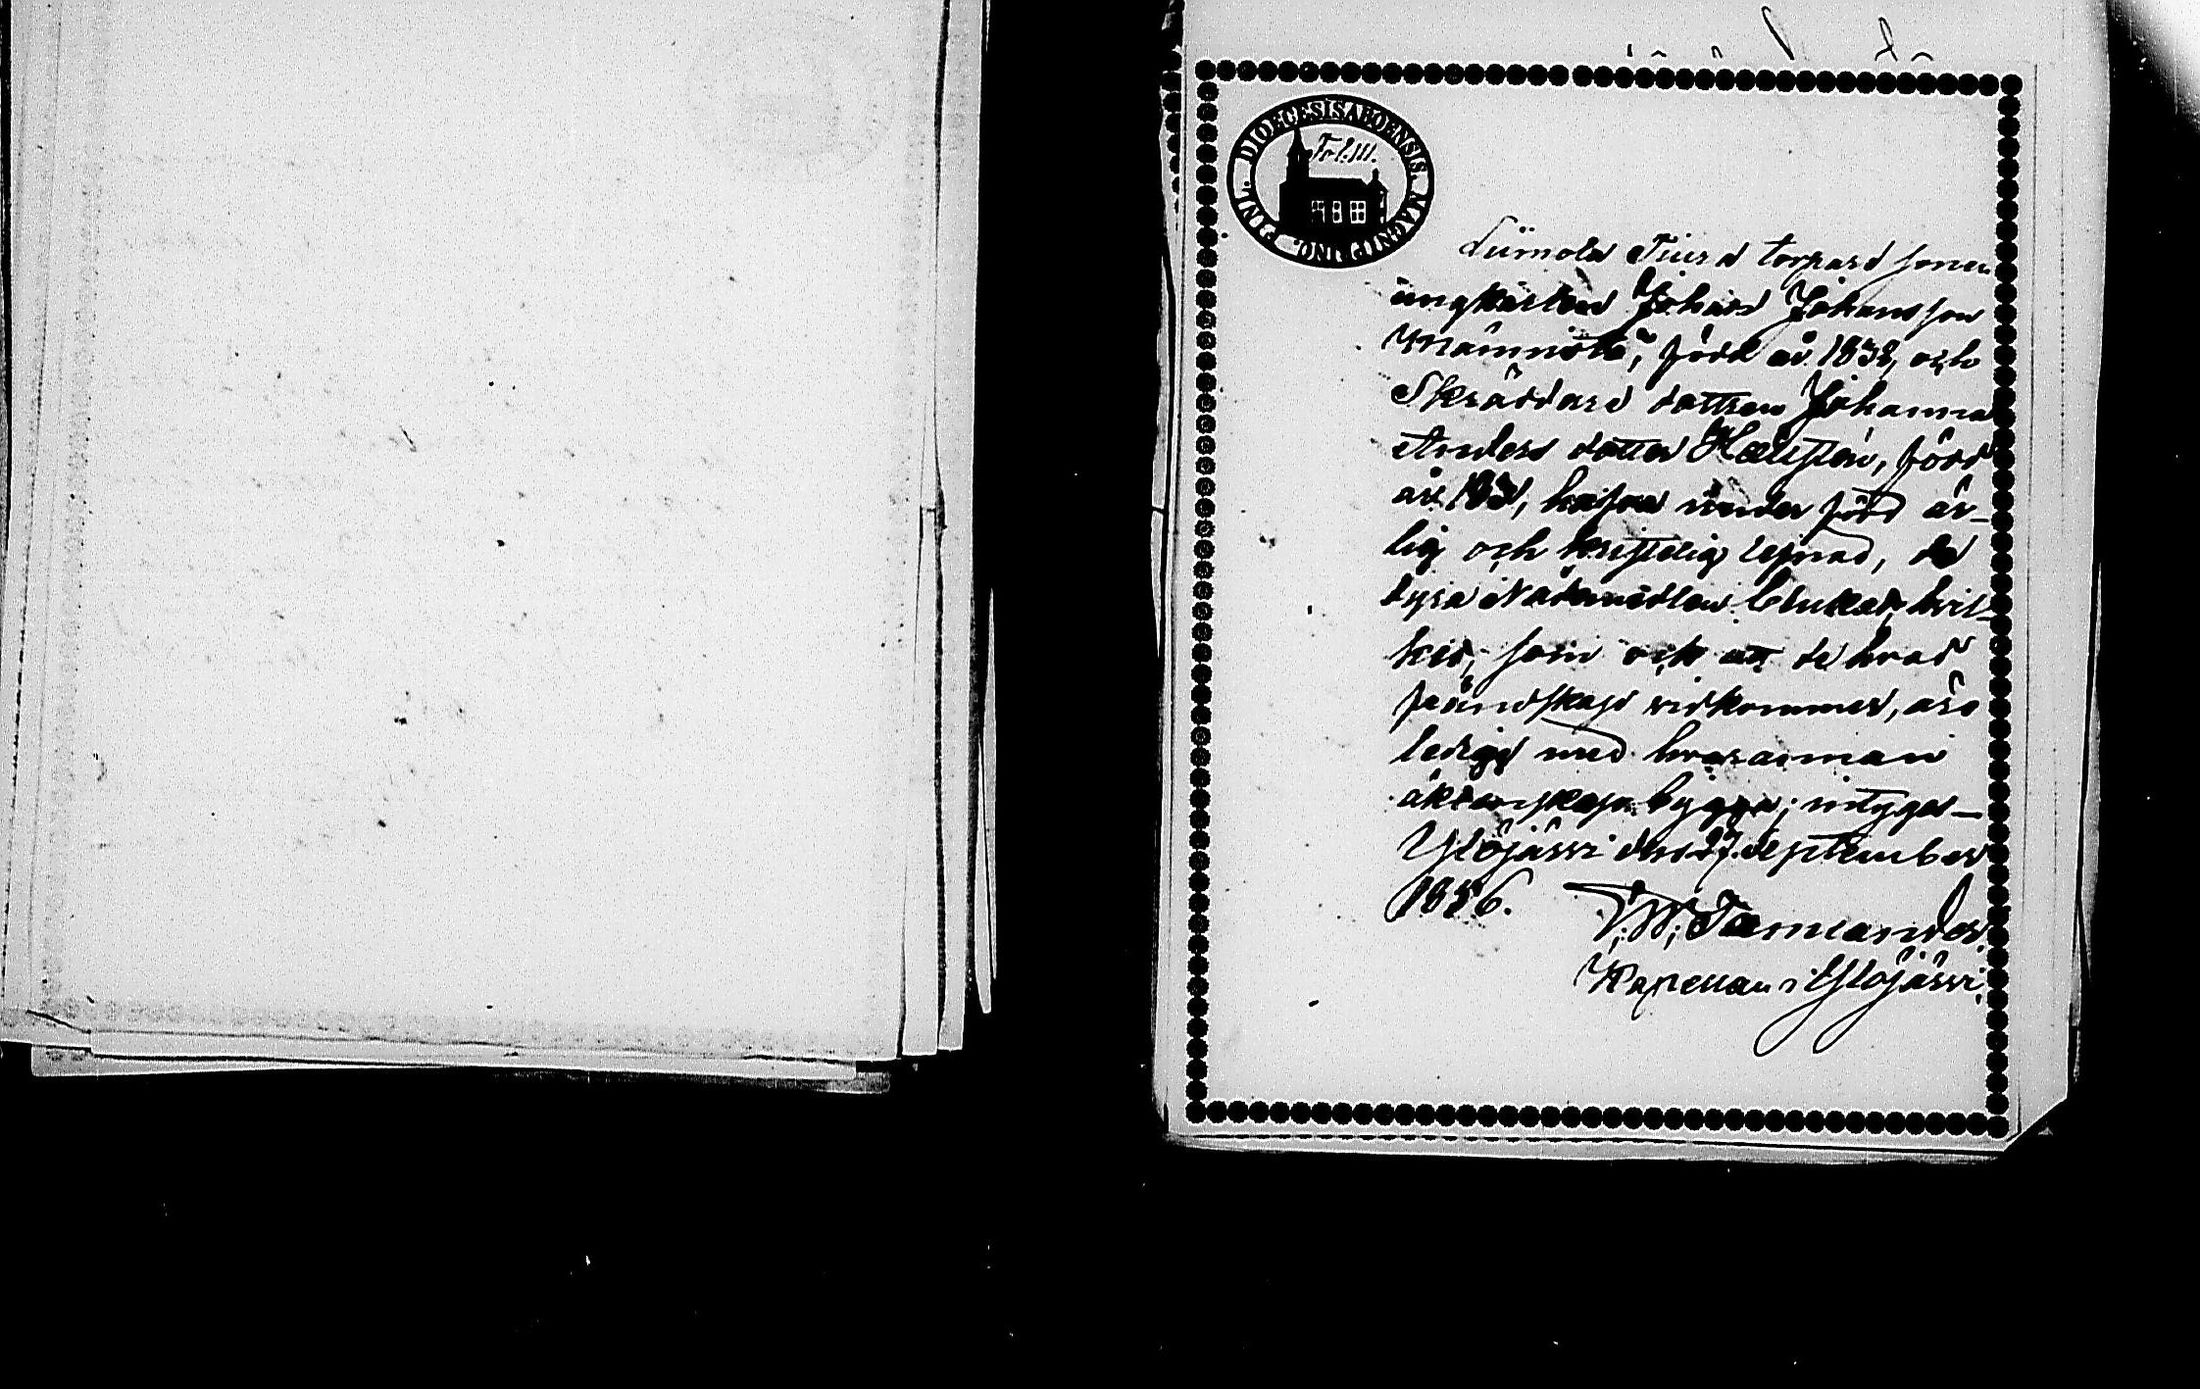 DIOECESIS ABOENSIS. MAGNI PRINC. FINL.
Tol. III.
Liimola Tiura torpare sonen
ungkarlen Johan Johansson
Männistö, född år 1832, och
Skräddare dottren Johanna
Anders dotter Hallstén, född
år, hafva under förd är-
lig och kristelig lefnad, de
dyra Nådemedlen brukat, hvil-
ket, som ock att de hvad
frändskap vidkommer, äro
lediga med hvarannan
äktenskap bygga, intygar
Ylöjärvi den 27 September
1856.
Tammander
Kapellan i Ylöjärvi.